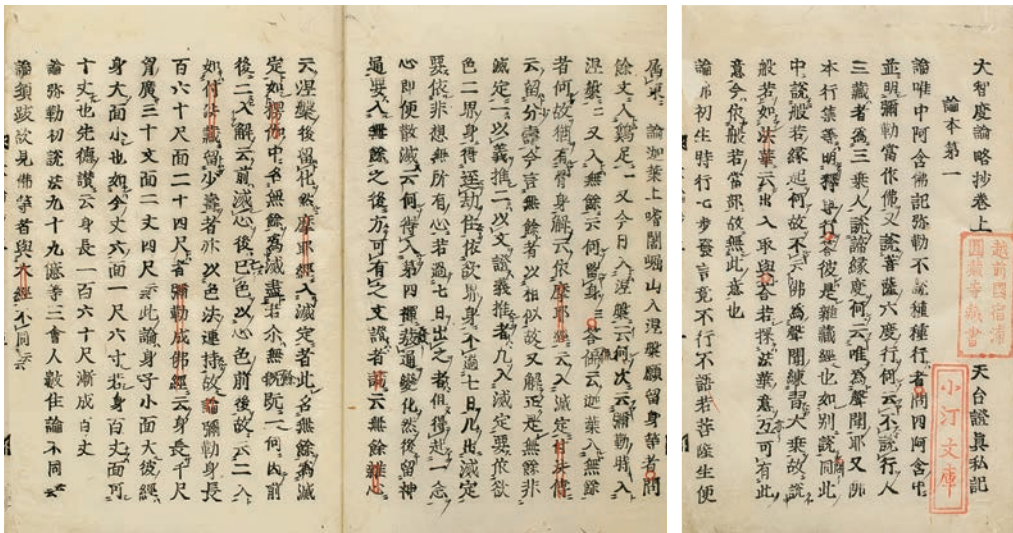 大智度論略抄卷上　天台證眞私記
論本第一
論唯中阿含佛記弥勒不説種種行者問四阿含中
並明彌勒當作佛又説菩薩六度行何云不説行人
三藏者為三乗人説諦縁度何云唯為聲聞耶又佛
本行集等明釋尊行答彼是雜藏經也如別説同此
中説般若縁起何故不云佛為聲聞練習大乗故説
般若如法華云出入取與答若探法華意亙可有此
意今依般若當部故無此意也
論布初生時行七步發言竟不行不語若菩薩生便
越前國宿浦
圓藏寺執書
小汀文庫
論迦葉上耆闍崛山入涅槃願留身華者問
餘文入鷄足又今日入涅槃云何次云彌勒時入
涅槃又入無餘云何留身答備云迦葉入無餘
者何故猶有骨身解云依摩耶經云入滅定付法傳
云留分壽今言無餘者以相似故又解正是無餘非
滅定一以義推二以文證義推者凡入滅定要依欲
色二界身得逕劫住依欲界身不過七日凡出滅定
要依非想無所有心若過七日出之者但得起一念
心即便散滅云何得入第四禪發通變化然後留神
通要入無餘之後方可有之文證者前云無餘雖心
云涅槃後留化然摩耶經入滅定者此名無餘為滅
後二人解云前滅心後已色以心色前後故云二入
如付法藏留少壽者亦以色法連持故論彌勒身長
百六十尺面二十四尺者彌勒成佛經云身長千尺
胷廣三十丈面二丈四尺云此論身子小面大彼經
身大面小也如今丈六面一尺六寸若身百丈面可
十丈也先德讚云身長一百六十尺漸成百丈
論彌勒初説法九十九億等三會人數住論不同云云
論須跋故見佛等者與大經不同云云